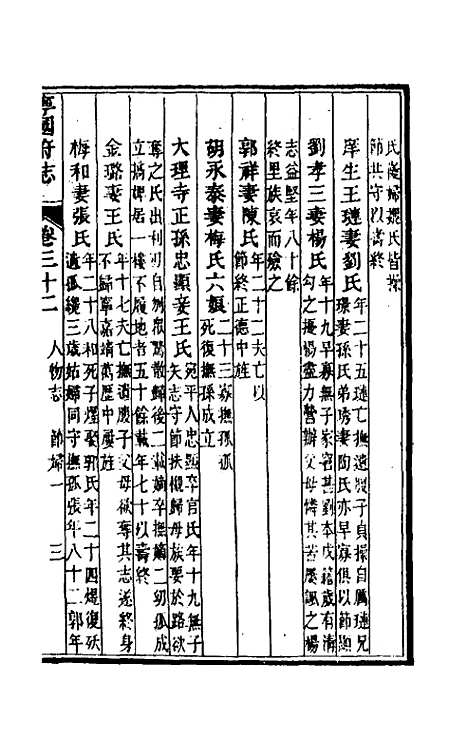 氏逄婦選氏皆撡
節共守以壽終
庠生王璉妻劉氏年二十五璉亡撫遺腹子貞操自厲璉兄
璟妻孫氏弟琇妻陶氏亦早寡俱以節顯
劉孝三妻楊氏年十九早寡無子家窘甚劉本戍籍歲有清
勾之擾楊盡力營辦父母憐其苦屢諷之楊
志益堅年八十餘
終里族哀而殮之
郭祥妻陳氏年二十二夫亡以
節終正德中旌
胡永泰妻梅氏六願二十三寡撫孤孤
死復撫孫成立
大理寺正孫忠顯妾王氏宛平人忠顯卒官氏年十九無子
矢志守節扶櫬歸母族要於路欲
奪之氏出利刃自刎眾驚散歸後二載嫡卒撫嫡二幼孤成
立搆婢居一樓不履地者五十餘載年七十以壽終
金璐妻王氏年十七夫亡撫遺腹子父母欲奪其志遂終身
不歸寧嘉靖萬歷中屢旌
梅和妻張氏年二十八和死子燿娶郭氏年二十四燿復歿
遺孤纔三歲姑婦同守撫孤張年八十二郭年
寧國府志
卷三十二
人物志
節婦一
三